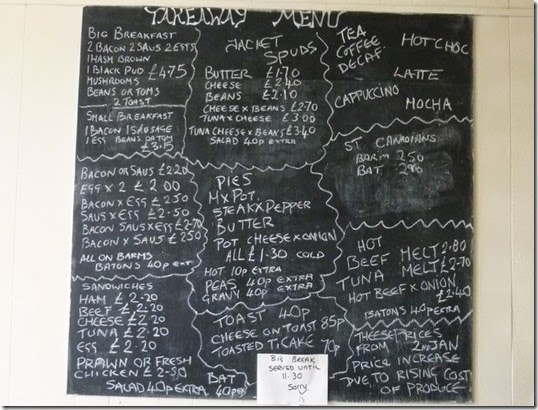 TAKEAWAY MENU
BIG BREAKFAST
2 BACON 2 SAUS 2 EGGS
1 HASH BROWN
1 BLACK PUD £4.75
MUSHROOMS
BEANS OR TOMS
2 TOAST
SMALL BREAKFAST
1 BACON 1 SAUSAGE
1 EGG BEANS OR TOM
£3.15
BACON OR SAUS £2.20
EGG X 2 £2.00
BACON X EGG £2.50
SAUS X EGG £2.50
BACON SAUS X EGG £2.70
BACON X SAUS £2.50
ALL ON BARMS
BATONS 40p EXT
SANDWICHES
HAM £2.20
BEEF £2.20
CHEESE £2.20
TUNA £2.20
EGG £2.20
PRAWN OR FRESH
CHICKEN £2.50
SALAD 40p EXTRA
BAT
40p
JACKET
SPUDS
BUTTER £1.70
CHEESE £2.40
BEANS £2.10
CHEESE X BEANS £2.70
TUNA X CHEESE £3.00
TUNA CHEESE X BEANS £3.40
SALAD 40p EXTRA
PIES
M X POT
STEAK X PEPPER
BUTTER
POT CHEESE X ONION
ALL £1.30 COLD
HOT 10p EXTRA
PEAS 40p EXTRA
GRAVY 40p EXTRA
TOAST 40p
CHEESE ON TOAST 85p
TOASTED T.CAKE 70p
BIG BREAK
SERVED UNTIL
11.30
Sorry
TEA
COFFEE
DECAF
HOT CHOC
LATTE
CAPPUCCINO
MOCHA
ST CANADIANS
BARM 250
BAT 290
HOT
BEEF MELT 2.80
TUNA MELT £2.70
HOT BEEF X ONION
£2.40
BATONS 40p EXTRA
THEESE PRICES
FROM 2ND JAN
PRICE INCREASE
DUE TO RISING COST
OF PRODUCE